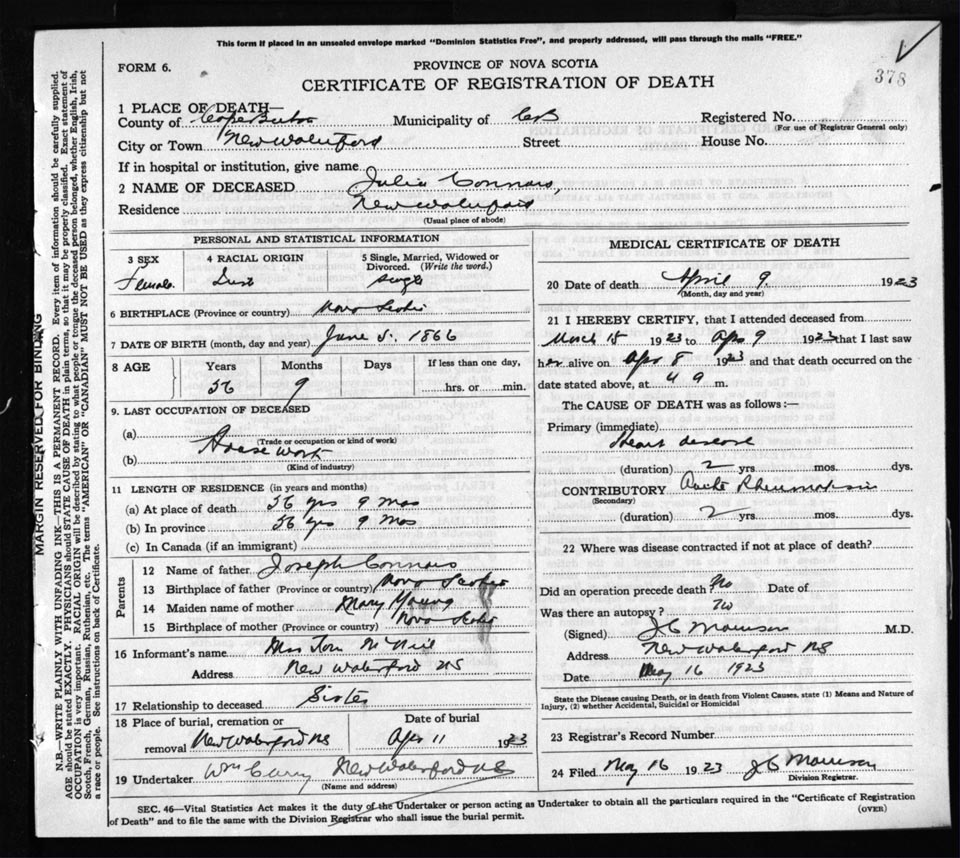 This form if placed in an unsealed envelope marked "Dominion Statistics Free", and properly addressed, will pass through the mails "FREE."
FORM 6.
PROVINCE OF NOVA SCOTIA
378
CERTIFICATE OF REGISTRATION OF DEATH
1 PLACE OF DEATH—
County of Cape Breton Municipality of CB Registered No.
(For use of Registrar General only)
City or Town New Waterford Street House No.
If in hospital or institution, give name
2 NAME OF DECEASED Julia Connors,
Residence New Waterford
(Usual place of abode)
PERSONAL AND STATISTICAL INFORMATION
3 SEX 4 RACIAL ORIGIN 5 Single, Married, Widowed or Divorced. (Write the word.)
Female Single
6 BIRTHPLACE (Province or country) Nova Scotia
7 DATE OF BIRTH (month, day and year) June 5. 1866
8 AGE Years Months Days If less than one day,
56 9 hrs. or min.
9. LAST OCCUPATION OF DECEASED
(a) House work
(Trade or occupation or kind of work)
(b)
(Kind of industry)
11 LENGTH OF RESIDENCE (in years and months)
(a) At place of death 56 yrs 9 mos
(b) In province 56 yrs 9 mos
(c) In Canada (if an immigrant)
Parents
12 Name of father Joseph Connors
13 Birthplace of father (Province or country) Nova Scotia
14 Maiden name of mother Mary Young
15 Birthplace of mother (Province or country) Nova Scotia
16 Informant's name Mrs Tom McNeil
Address New Waterford NS
17 Relationship to deceased Sister
18 Place of burial, cremation or removal New Waterford NS
Date of burial Apr 11 1923
19 Undertaker Wm Curry New Waterford NS
(Name and address)
MEDICAL CERTIFICATE OF DEATH
20 Date of death April 9. 1923
(Month, day and year)
21 I HEREBY CERTIFY, that I attended deceased from
March 15 1923 to Apr 9 1923 that I last saw
her alive on Apr 8 1923 and that death occurred on the
date stated above, at m.
The CAUSE OF DEATH was as follows:—
Primary (immediate)
Heart disease
(duration) 2 yrs. mos. dys.
CONTRIBUTORY Acute Rheumatism
(Secondary)
(duration) 2 yrs. mos. dys.
22 Where was disease contracted if not at place of death?
Did an operation precede death? No Date of
Was there an autopsy? No
(Signed) J C Morrison M.D.
Address New Waterford NS
Date May 16 1923
State the Disease causing Death, or in death from Violent Causes, state (1) Means and Nature of
Injury, (2) whether Accidental, Suicidal or Homicidal
23 Registrar's Record Number
24 Filed May 16 1923 J C Morrison
Division Registrar.
SEC. 46—Vital Statistics Act makes it the duty of the Undertaker or person acting as Undertaker to obtain all the particulars required in the "Certificate of Registration
of Death" and to file the same with the Division Registrar who shall issue the burial permit.
(OVER)
MARGIN RESERVED FOR BINDING
N.B.—WRITE PLAINLY WITH UNFADING INK—THIS IS A PERMANENT RECORD. Every item of information should be carefully supplied.
AGE should be stated EXACTLY. PHYSICIANS should STATE CAUSE OF DEATH in plain terms, so that it may be properly classified. Exact statement of
OCCUPATION is very important. RACIAL ORIGIN will be described by stating to what people or tongue the deceased person belonged, whether English, Irish,
Scotch, French, German, Russian, Ruthenian, etc. The terms "AMERICAN" OR "CANADIAN" MUST NOT BE USED as they express citizenship but not
a race or people. See instructions on back of Certificate.